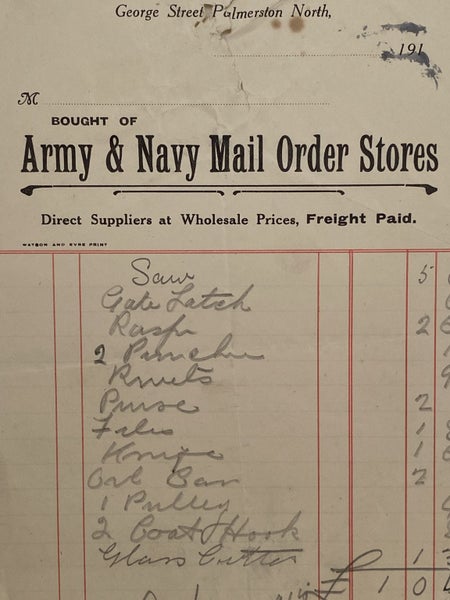 George Street, Palmerston North,
191
M
BOUGHT OF
Army & Navy Mail Order Stores
Direct Suppliers at Wholesale Prices, Freight Paid.
WATSON AND EYRE PRINT
Saw 5
Gate Latch
Rasp 2
2 Punches
Rivets
Purse 2
Files 1
Knife 1
Oil Can 2
1 Pulley
2 Coat Hook
Glass Cutter 1 3
£ 1 0